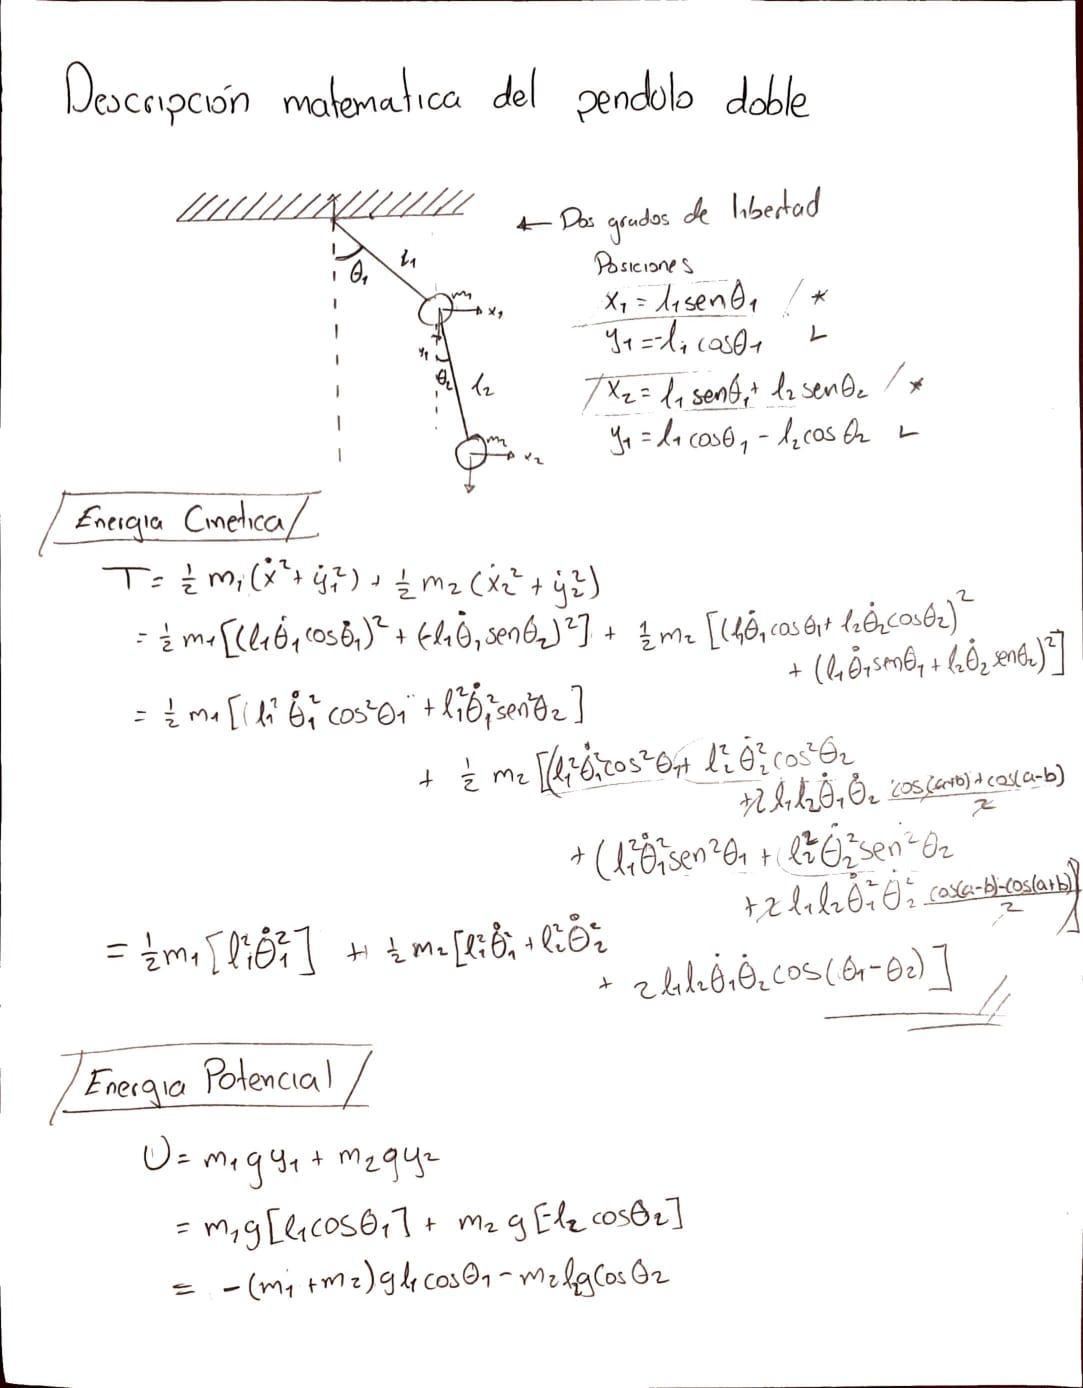 Descripción matematica del pendulo doble
← Dos grados de libertad
θ₁ l₁
Posiciones
m₁ x₁
x₁ = l₁senθ₁ / *
y₁ = -l₁ cosθ₁ L
y₁ θ₂ l₂
x₂ = l₁ senθ₁ + l₂ senθ₂ / *
y₁ = l₁ cosθ₁ - l₂ cos θ₂ L
m x₂
Energia Cinetica
T = ½ m₁ (ẋ² + ẏ₁²) + ½ m₂ (ẋ₂² + ẏ₂²)
= ½ m₁ [(l₁θ̇₁ cosθ̇₁)² + (-l₁θ̇₁ senθ₂)²] + ½ m₂ [(l₁θ̇₁ cosθ₁ + l₂θ̇₂cosθ₂)²
+ (l₁θ̇₁senθ₁ + l₂θ̇₂ senθ₂)²]
= ½ m₁ [(l₁² θ̇₁² cos²θ₁ + l₁²θ̇₁²sen²θ₂]
+ ½ m₂ [(l₁²θ̇₁²cos²θ₁ + l₂² θ̇₂²cos²θ₂
+2 l₁l₂θ̇₁θ̇₂ cos(a+b)+cos(a-b)/2
+ (l₁²θ̇₁²sen²θ₁ + l₂²θ̇₂²sen²θ₂
+2 l₁l₂θ̇₁²θ̇₂² cos(a-b)-cos(a+b)/2]
= ½m₁ [l₁²θ̇₁²] + ½ m₂ [l₁²θ̇₁² + l₂²θ̇₂²
+ 2l₁l₂θ̇₁θ̇₂cos(θ₁-θ₂)]
Energia Potencial
U = m₁gy₁ + m₂gy₂
= m₁g[l₁cosθ₁] + m₂ g[-l₂ cosθ₂]
= -(m₁ + m₂)gl₁ cosθ₁ - m₂l₂gcosθ₂